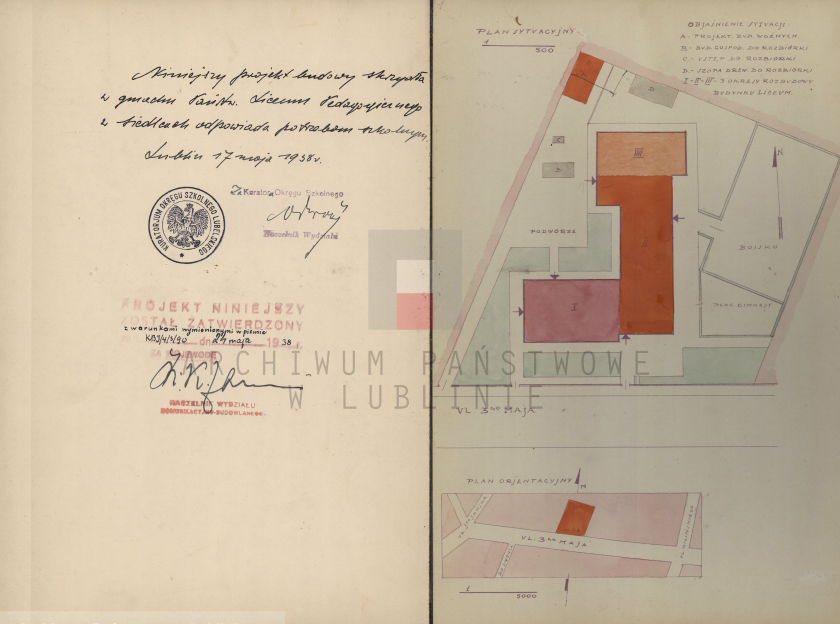 Niniejszy projekt budowy skrzydła
w gmachu Państw. Liceum Pedagogicznego
w Siedlcach odpowiada potrzebom szkolnym.
Lublin 17 maja 1938 r.
KURATORJUM OKRĘGU SZKOLNEGO LUBELSKIEGO
Za Kuratora Okręgu Szkolnego
Naczelnik Wydziału
PROJEKT NINIEJSZY
ZOSTAŁ ZATWIERDZONY
z warunkami wymienionymi w piśmie
dn 24 maja 1938
ZA WOJEWODĘ
NACZELNIK WYDZIAŁU
KOMUNIKACYJNO-BUDOWLANEGO
PLAN SYTUACYJNY
1
500
OBJAŚNIENIE SYTUACJI:
A - PROJEKT. BUD. WOŹNYCH.
B - BUD. GOSPOD. DO ROZBIÓRKI
C - USTĘP DO ROZBIÓRKI
D - SZOPA DREW. DO ROZBIÓRKI
I-II-III - 3 OKRESY ROZBUDOWY
BUDYNKU LICEUM.
III
N
PODWÓRZE
BOISKO
I
UL. 3GO MAJA
PLAN ORJENTACYJNY
N
UL. 3GO MAJA
1
5000
ARCHIWUM PAŃSTWOWE
W LUBLINIE